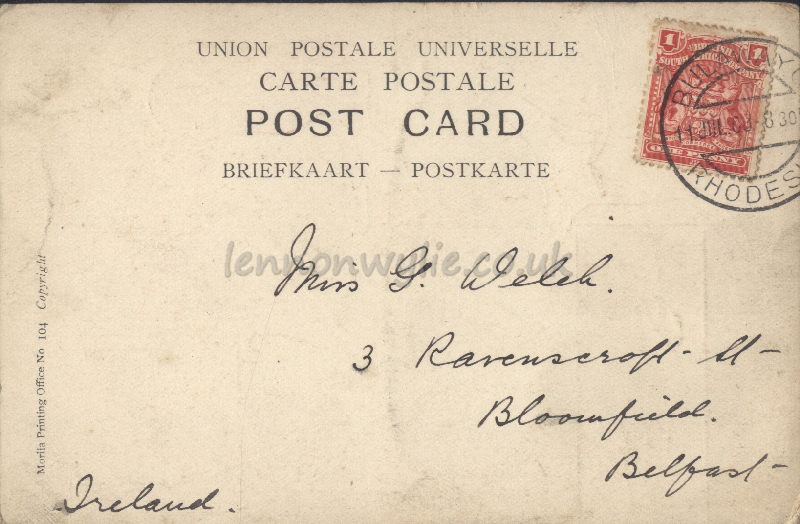 UNION POSTALE UNIVERSELLE
CARTE POSTALE
POST CARD
BRIEFKAART — POSTKARTE
1 1
SOUTH AFRICA COMPANY
ONE PENNY
BULAWAYO
11 JUL 8 30
RHODESI
lennonwylie.co.uk
Miss G. Welch.
3 Ravenscroft St
Bloomfield.
Belfast
Ireland.
Morila Printing Office No 104 Copyright